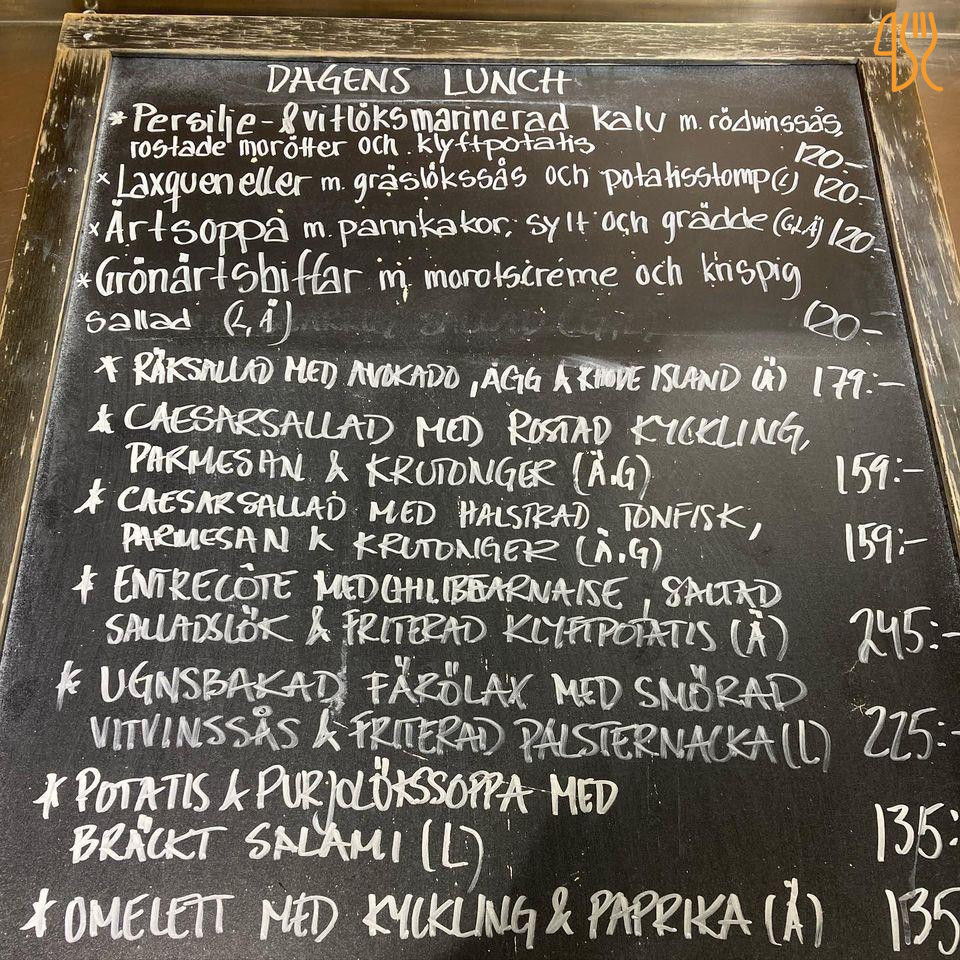 DAGENS LUNCH
* Persilje- & vitlöksmarinerad kalv m. rödvinssås,
rostade morötter och klyftpotatis 120:-
* Laxqueneller m. gräslökssås och potatisstomp (L) 120:-
* Ärtsoppa m. pannkakor, sylt och grädde (G,L,Ä) 120:-
* Grönärtsbiffar m. morotscréme och krispig
sallad (L, Ä) 120:-
* RÄKSALLAD MED AVOKADO, ÄGG & RHODE ISLAND (Ä) 179:-
* CAESARSALLAD MED ROSTAD KYCKLING,
PARMESAN & KRUTONGER (Ä.G) 159:-
* CAESARSALLAD MED HALSTRAD TONFISK,
PARMESAN & KRUTONGER (Ä.G) 159:-
* ENTRECÔTE MED CHILIBEARNAISE, SALTAD
SALLADSLÖK & FRITERAD KLYFTPOTATIS (Ä) 245:-
* UGNSBAKAD FÄRÖLAX MED SMÖRAD
VITVINSSÅS & FRITERAD PALSTERNACKA (L) 225:-
* POTATIS & PURJOLÖKSSOPPA MED
BRÄCKT SALAMI (L) 135:
* OMELETT MED KYCKLING & PAPRIKA (Ä) 135